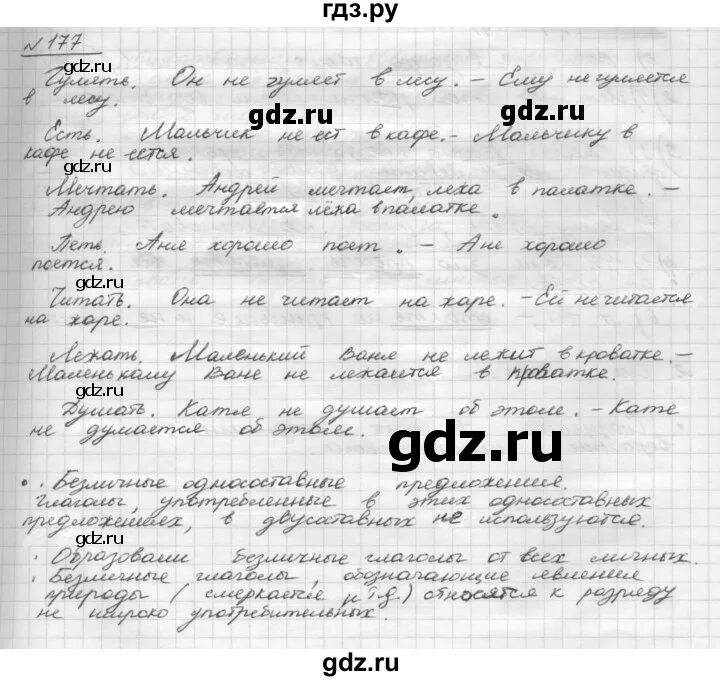 гдз.ру
№ 177
Гулять. Он не гуляет в лесу. – Ему не гуляется
в лесу.
gdz.ru gdz.ru
Есть. Мальчик не ест в кафе. – Мальчику в
кафе не естся.
gdz.ru
Мечтать. Андрей мечтает, лёжа в палатке. –
Андрею мечтается лёжа в палатке.
gdz.ru
Петь. Аня хорошо поет. – Ане хорошо
поется.
gdz.ru gdz.ru
Читать. Она не читает на жаре. – Ей не читается
на жаре.
gdz.ru
Лежать. Маленький Ваня не лежит в кроватке. –
Маленькому Ване не лежится в кроватке.
gdz.ru
Думать. Катя не думает об этом. – Кате
не думается об этом.
gdz.ru
• . Безличные односоставные предложения.
Глаголы, употребленные в этих односоставных
предложениях, в двусоставных не используются.
gdz.ru
. Образовали безличные глаголы от всех личных.
. Безличные глаголы, обозначающие явления
природы (смеркается и т.д.) относятся к разряду
не широко употребительных.
gdz.ru
gdz.ru